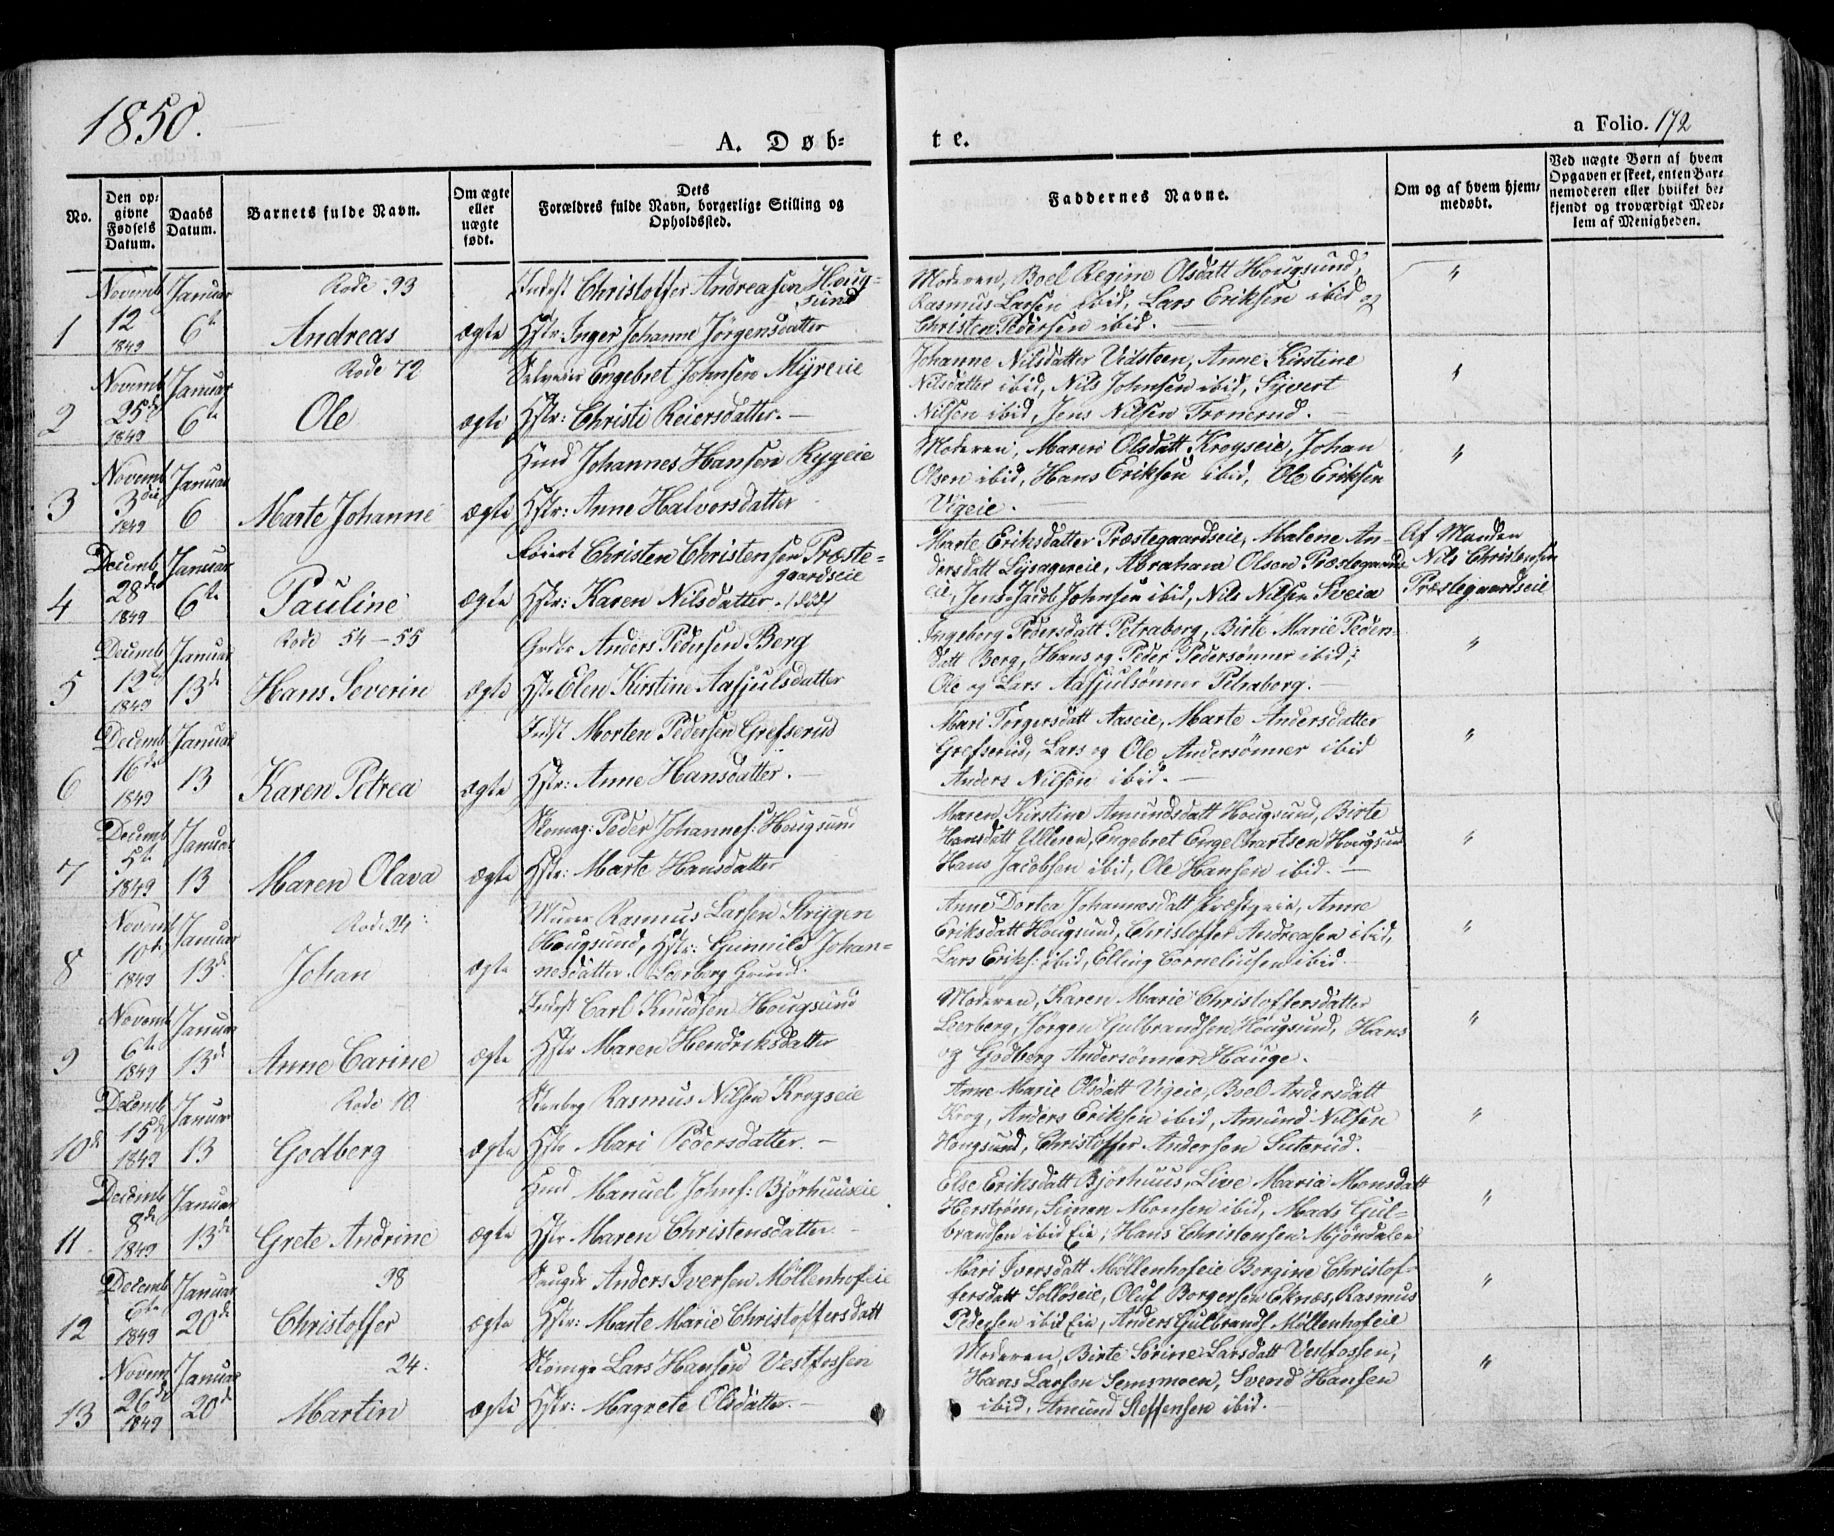 1850.
A. Døb-
te.
a Folio. 172
No.
Den op-
givne
Fødsels
Datum.
Daabs
Datum.
Barnets fulde Navn.
Om ægte
eller
uægte
født.
Dets
Forældres fulde Navn, borgerlige Stilling og
Opholdssted.
Faddernes Navne.
Om og af hvem hjem-
medøbt.
Ved uægte Børn af hvem
Opgaven er skeet, enten Bar-
nemoderen eller hvilket be-
kjendt og troværdigt Med-
lem af Menigheden.
1
Novemb
12
1849
Januar
6te
Rode 93
Andreas
ægte
Indest Christoffer Andreasen Houg-
sund
Hstr: Inger Johanne Jörgensdatter
Moderen, Boel Regine Olsdatt Hougsund,
Rasmus Larsen ibid, Lars Eriksen ibid og
Christen Pedersen ibid. —
"
2
Novemb
25de
1849
Januar
6te
Rode 72
Ole
ægte
Selveier Engebret Johnsen Myreie
Hstr: Christi Reiersdatter. —
Johanne Nilsdatter Vidsteen, Anne Kirstine
Nilsdatter ibid, Nils Johnsen ibid, Syvert
Nilsen ibid, Jens Nilsen Tromrud. —
"
3
Novemb
3die
1849
Januar
6
Marte Johanne
ægte
Huusmd Johannes Hansen Rygeie
Hstr: Anne Halvorsdatter
Moderen, Maren Olsdatt Krogseie, Johan
Olsen ibid, Hans Eriksen ibid, Ole Eriksen
Vigeie.
"
4
Decemb
28de
1849
Januar
6te
Pauline
ægte
Christen Christensen Præste-
gaardseie
Hstr: Karen Nilsdatter
Marte Eriksdatter Præstegaardseie, Malene An-
dersdatt Lysagereie, Abraham Olsen Præstegaards
eie, Jens Jacob Johnsen ibid, Nils Nilsen Sveia
Af Manden
Nils Christensen
Præstegaardseie
5
Decemb
12te
1849
Januar
13de
Rode 54 - 55
Hans Severin
ægte
Grdbr Anders Pedersen Berg
Hstr Elen Kirstine Aasjulsdatter
Ingeborg Pedersdatt Petraborg, Birte Marie Peders-
datt Berg, Hans og Peder Pedersønner ibid,
Ole og Lars Aasjulsönner Petraborg. —
"
6
Decemb
16de
1849
Januar
13
Karen Petrea
ægte
Indst Morten Pedersen Grefserud
Hstr: Anne Hansdatter. —
Mari Torgersdatt Aaseie, Marte Andersdatter
Grefserud, Lars og Ole Andersønner ibid
Anders Nilsen ibid. —
"
7
Decemb
5te
1849
Januar
13
Maren Olava
ægte
Skomag: Peder Johannes: Hougsund
Hstr: Marte Hansdatter
Maren Kirstine Amundsdatt Hougsund, Birte
Hansdatt Ulleren, Engebret Engelhartsen Hougsund
Hans Jacobsen ibid, Ole Hansen ibid. —
"
8
Novemb
10de
1849
Januar
13de
Rode 24:
Johan
ægte
Murer Rasmus Larsen Strygen
Hougsund, Hstr: Gunnild Johan-
nesdatter Leerberg Grund.
Anne Dortea Johannesdatt Præstgeie, Anne
Eriksdatt Hougsund, Christoffer Andreasen ibid,
Lars Eriks: ibid, Elling Corneliusen ibid.
"
9
Novemb
6te
1849
Januar
13de
Anne Carine
ægte
Indest Carl Knudsen Hougsund
Hstr Maren Hendriksdatter
Moderen, Karen Marie Christoffersdatter
Leerberg, Jørgen Gulbrandsen Hougsund, Hans
og Godberg Andersønner Hauge.
"
10de
Decemb
15de
1849
Januar
13
Rode 10.
Godberg
ægte
Rasmus Nilsen Krogseie
Hstr Mari Pedersdatter. —
Anne Marie Olsdatt Vigeie, Boel Andersdatt
Krog, Anders Eriksen ibid, Amund Nilsen
Hougsund, Christoffer Andersen Suterud.
"
11.
Decemb
8de
1849
Januar
13de
Grete Andrine
ægte
Husmd Manuel Johns: Bjørhuuseie
Hstr Maren Christensdatter —
Else Eriksdatt Bjørhuus, Live Maria Monsdatt
Herstrøm, Simen Monsen ibid, Mads Gul-
brandsen ibid Eie, Hans Christensen Mjøndalen
"
12
Decemb
6te
1849
Januar
20de
98
Christoffer
ægte
Anders Iversen Möllenhofeie
Hstr: Marte Marie Christoffersdatt
Mari Iversdatt Möllenhofeie Borgine Christof-
fersdatt Solløseie, Oluf Borgersen Eknæs, Rasmus
Pedersen ibid Eie, Anders Gulbrands Möllenhofeie
"
13
Novemb
26de
1849
Januar
20de
24.
Martin
ægte
Lars Hansen Vestfossen
Hstr: Magrete Olsdatter. —
Moderen, Birte Sørine Larsdatt Vestfossen,
Hans Larsen Semsmoen, Svend Hansen
ibid, Amund Steffensen ibid.
"